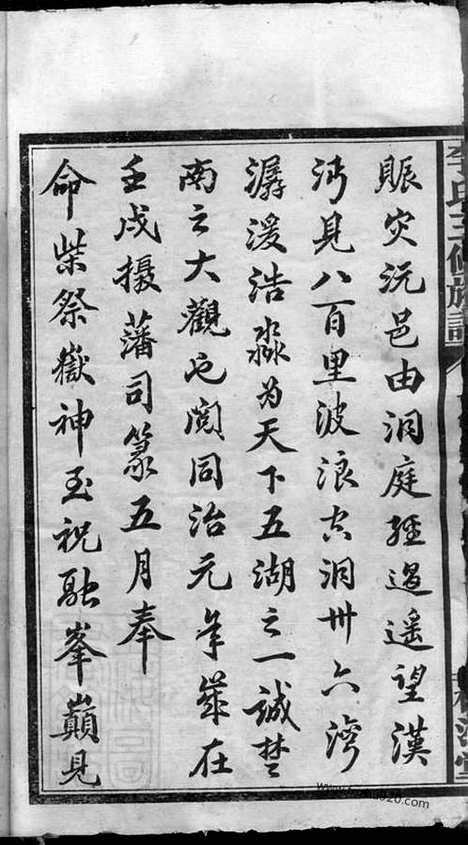 李氏三修族譜
賑灾沅邑由洞庭經過遥望漢
沔見八百里波浪空洞卅六湾
潺湲浩淼为天下五湖之一誠楚
南之大觀也閱同治元年嵗在
壬戌攝藩司篆五月奉
命柴祭嶽神至祝融峯巔見